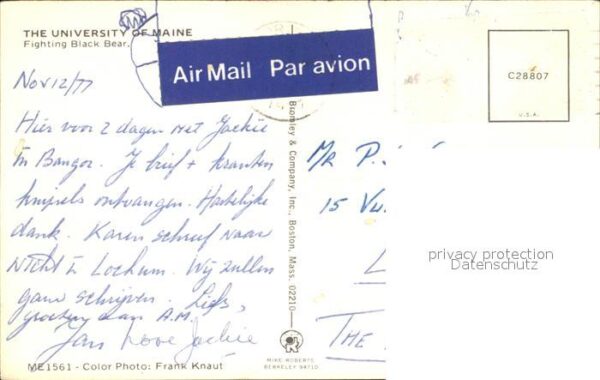 THE UNIVERSITY OF MAINE
Fighting Black Bear.
Air Mail Par avion
C28807
U.S.A.
Nov 12/77
Hier voor 2 dagen met Jackie
in Bangor. Je brief + kranten
knipsels ontvangen. Hartelijke
dank. Karen schreef naar
Nicht in Lochum. Wij zullen
gauw schrijven. Liefs,
groeten aan A.M.
Jan Love Jackie
Bromley & Company, Inc., Boston, Mass. 02210
MR P.
15 Vu
L
THE
privacy protection
Datenschutz
MIKE ROBERTS
BERKELEY 94710
ME1561 - Color Photo: Frank Knaut